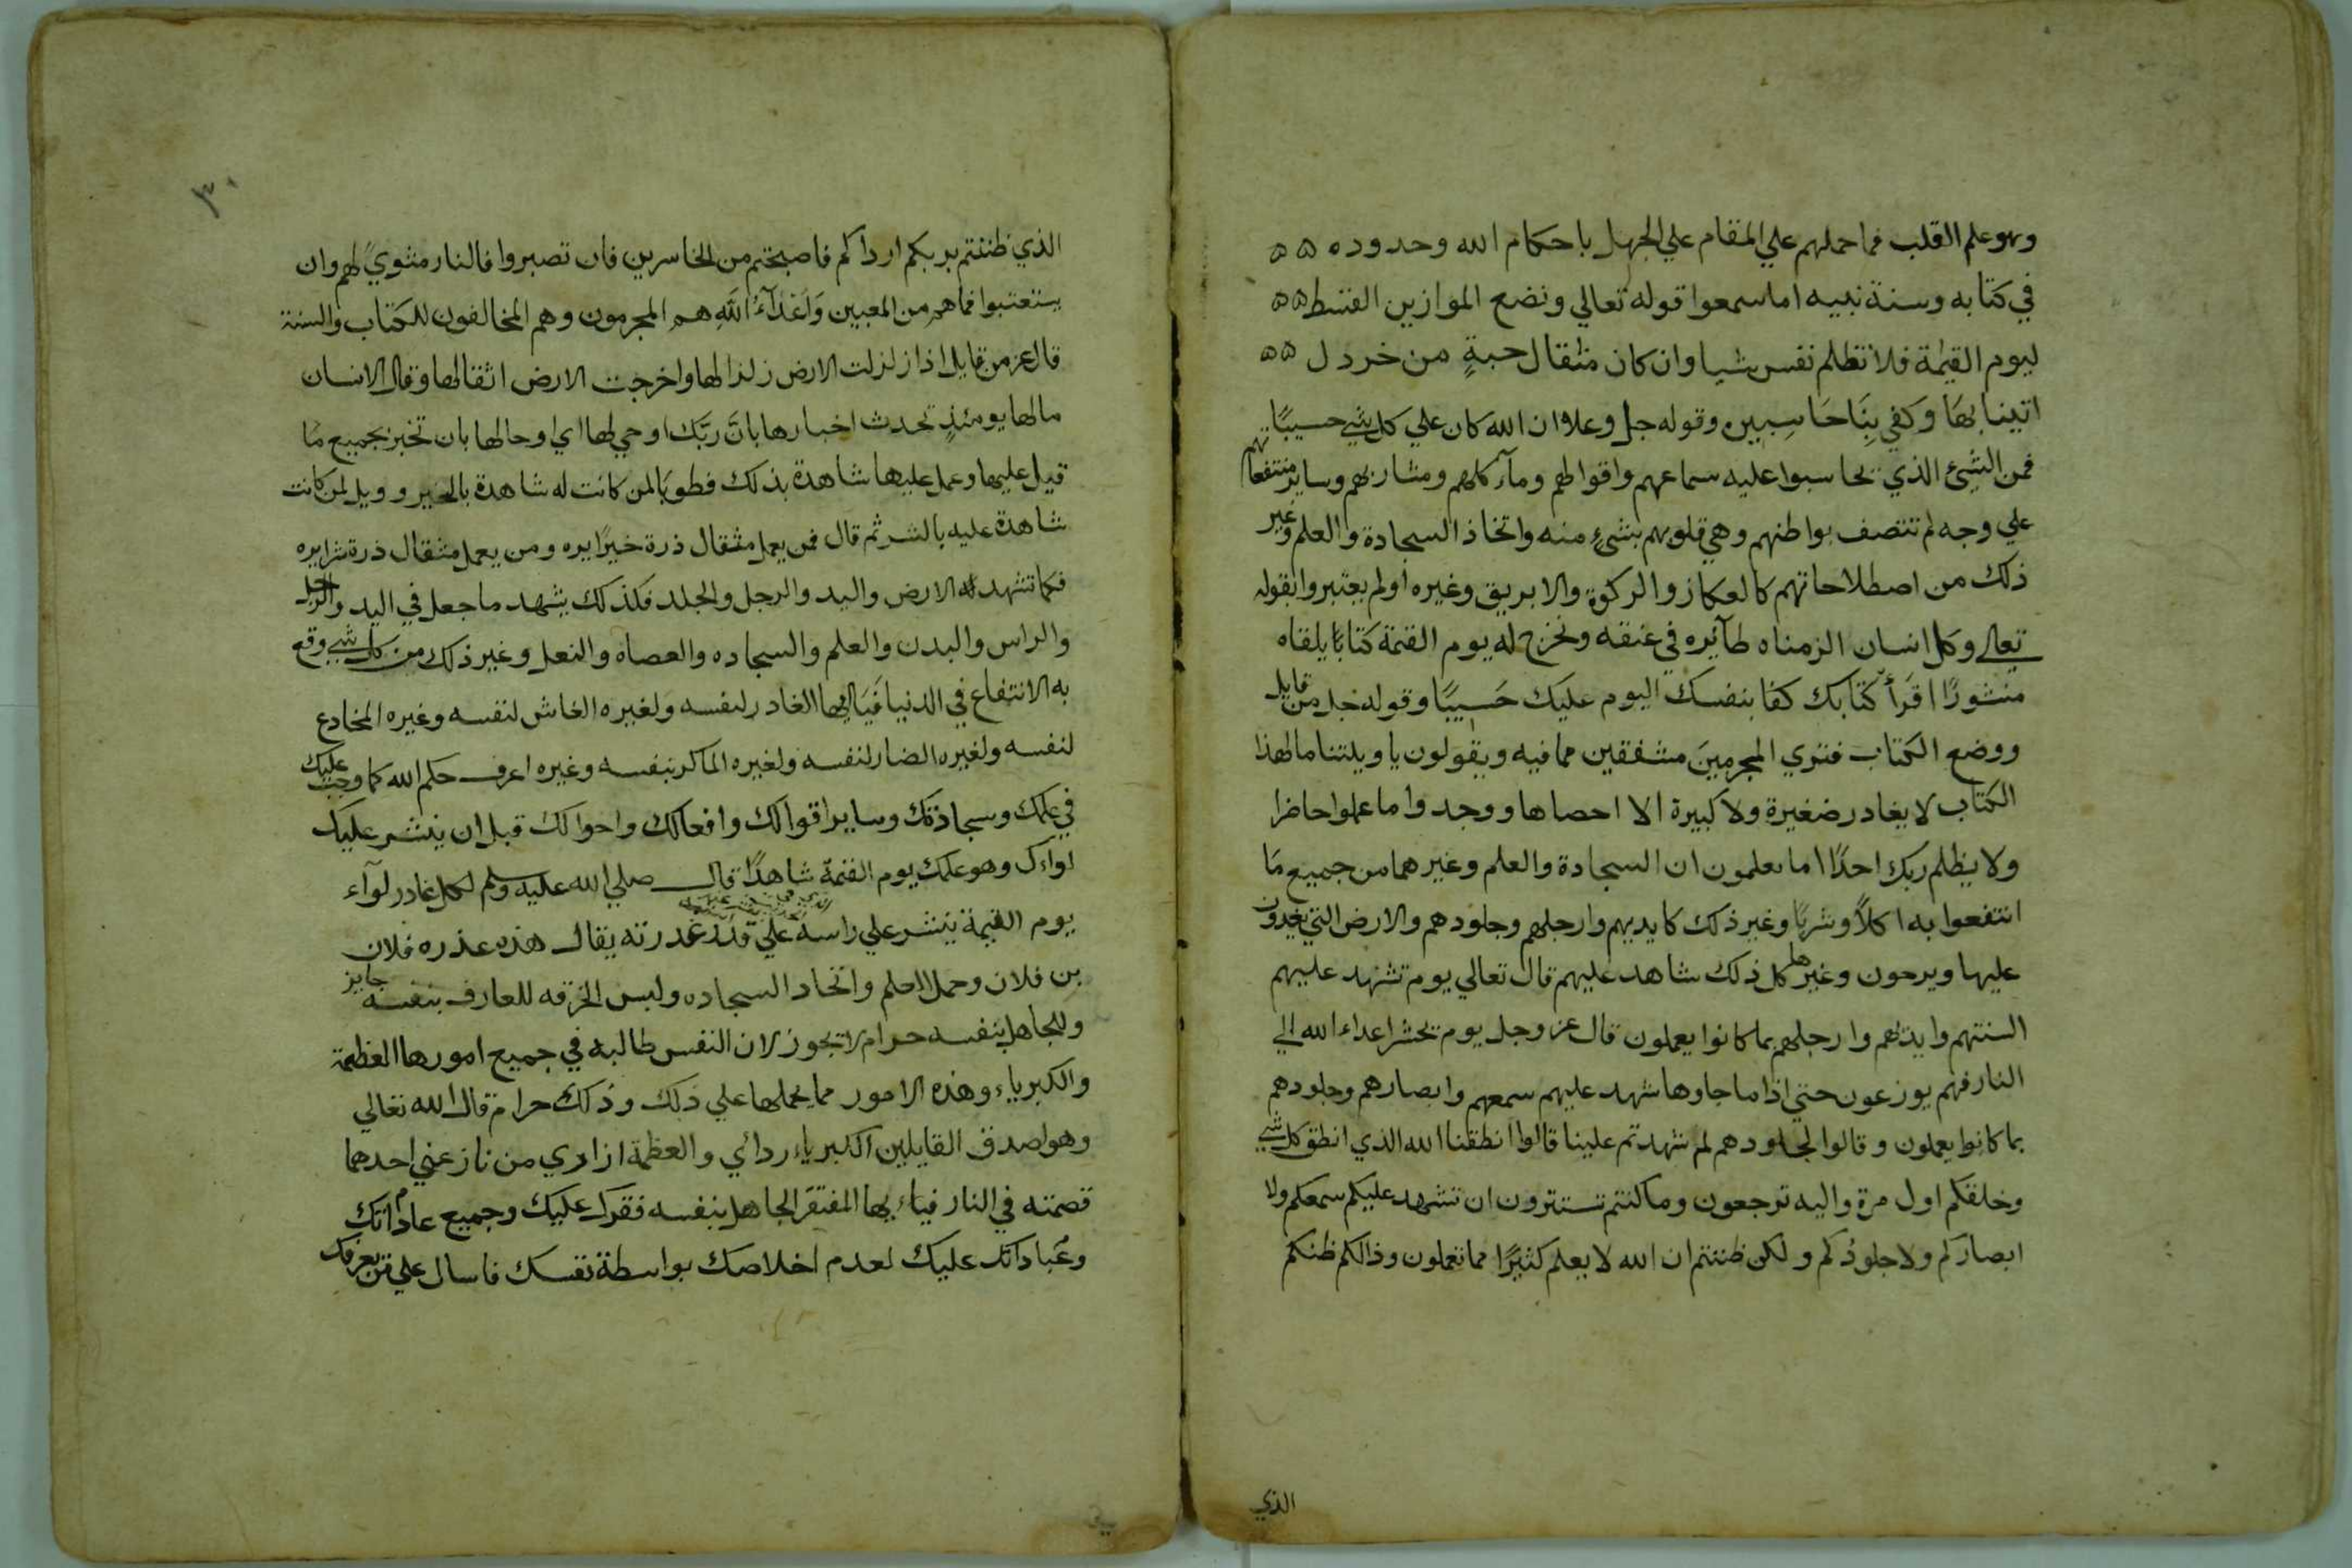 وهو علم القلب فما حملهم علي المقام علي الجهل باحكام الله وحدوده ۵ ۵
في كتابه وسنة نبيه اما سمعوا قوله تعالي ونضع الموازين القسط ۵۵
ليوم القيمة فلا تظلم نفس شيا وان كان مثقال حبةٍ من خردل ۵۵
اتينا بهَا وَكفي بِنَا حَاسِبين وقوله جل وعلا ان الله كان علي كل شي حسيبًا
فمن الشئ الذي تحاسبوا عليه سماعهم واقوالهم ومآكلهم ومشاربهم وساير منتفعاتهم
علي وجه لم تتصف بواطنهم وهي قلوبهم بشئٍ منه واتخاذ السجادة والعلم وغير
ذلك من اصطلاحاتهم كالعكاز والركوة والابريق وغيره اولم يعتبروا بقوله
تعالي وكل انسان الزمناه طآئره في عنقه ونخرج له يوم القيمة كتابًا يلقاه
منشورًا اقرَأ كتابك كفا بنفسك اليوم عليك حَسيبًا وقوله جل من قايل
ووضع الكتاب فتري المجرمينَ مشفقين مما فيه ويقولون يا ويلتنا مال هذا
الكتاب لا يغادر صغيرة ولا كبيرة الا احصاها ووجدوا ما عملوا حاضرا
ولا يظلم ربك احدًا اما يعلمون ان السجادة والعلم وغيرهما من جميع مَا
انتفعوا به اكلاً وشربًا وغير ذلك كايديهم وارجلهم وجلودهم والارض التي يغدون
عليها ويرحون وغيرها كل ذلك شاهد عليهم قال تعالي يوم تشهد عليهم
السنتهم وايديهم وارجلهم بما كانوا يعملون قال عز وجل يوم نحشر اعداء الله الي
النار فهم يوزعون حتي اذا ما جاوها شهد عليهم سمعهم وابصارهم وجلودهم
بما كانوا يعملون وقالوا لجلودهم لم شهدتم علينا قالوا انطقنا الله الذي انطق كل شي
وخلقكم اول مرة واليه ترجعون وما كنتم تستترون ان تشهد عليكم سمعكم ولا
ابصاركم ولا جلودكم ولكن ظننتم ان الله لا يعلم كثيرًا مما تعملون وذالكم ظنكم
الذي
٣٠
الذي ظننتم بربكم ارداكم فاصبحتم من الخاسرين فان تصبروا فالنار مثويً لهم وان
يستعتبوا فما هم من المعبين وَاَعْدَآءُ اللَّهِ هم المجرمون وهم المخالفون للكتاب والسنة
قال عز من قايل اذا زلزلت الارض زلزالها واخرجت الارض اثقالها وقال الانسان
مالها يومئذٍ تحدث اخبارها بانَّ ربَّك اوحي لها اي اوحا لها بان تخبر بجميع مَا
قيل عليها وعمل عليها شاهدة بذلك فطوبَا لمن كانت له شاهدة بالخير وويل لمن كانت
شاهدة عليه بالشر ثم قال فمن يعمل مثقال ذرة خيرًا يره ومن يعمل مثقال ذرة شرا يره
فكما تشهد له الارض واليد والرجل والجلد فكذلك يشهد ما جعل في اليد والرجل
والراس والبدن والعلم والسجاده والعصاه والنعل وغير ذلك من كل شي وقع
به الانتفاع في الدنيا فَيَا ايها الغادر لنفسه ولغيره الغاش لنفسه وغيره المخادع
لنفسه ولغيره الضار لنفسه ولغيره الماكر بنفسه وغيره اعرف حكم الله كما وجب عليك
في علمك وسجادتك وساير اقوالك وافعالك واحوالك قبل ان ينشر عليك
لواءك وهو علمك يوم القيمة شاهدًا قال صلي الله عليه وسلم لكل غادر لوآء
يوم القيمة ينشر علي راسه علي قدر غدرته يقال هذه غدره فلان
بن فلان وحمل العلم واتخاد السجاده ولبس الخرقه للعارف بنفسه جايز
وللجاهل بنفسه حرام لا تجوز لان النفس طالبه في جميع امورها العظمة
والكبرياء وهذه الامور مما يحملها علي ذلك وذلك حرام قال الله تعالي
وهو اصدق القايلين الكبرياء ردائي والعظمة ازاري من نازعني احدهما
قصمته في النار فياء يها المفتقر الجاهل بنفسه فقرك عليك وجميع عاداتك
وعُباداتك عليك لعدم اخلاصك بواسطة نفسك فاسال علي من يعرفك